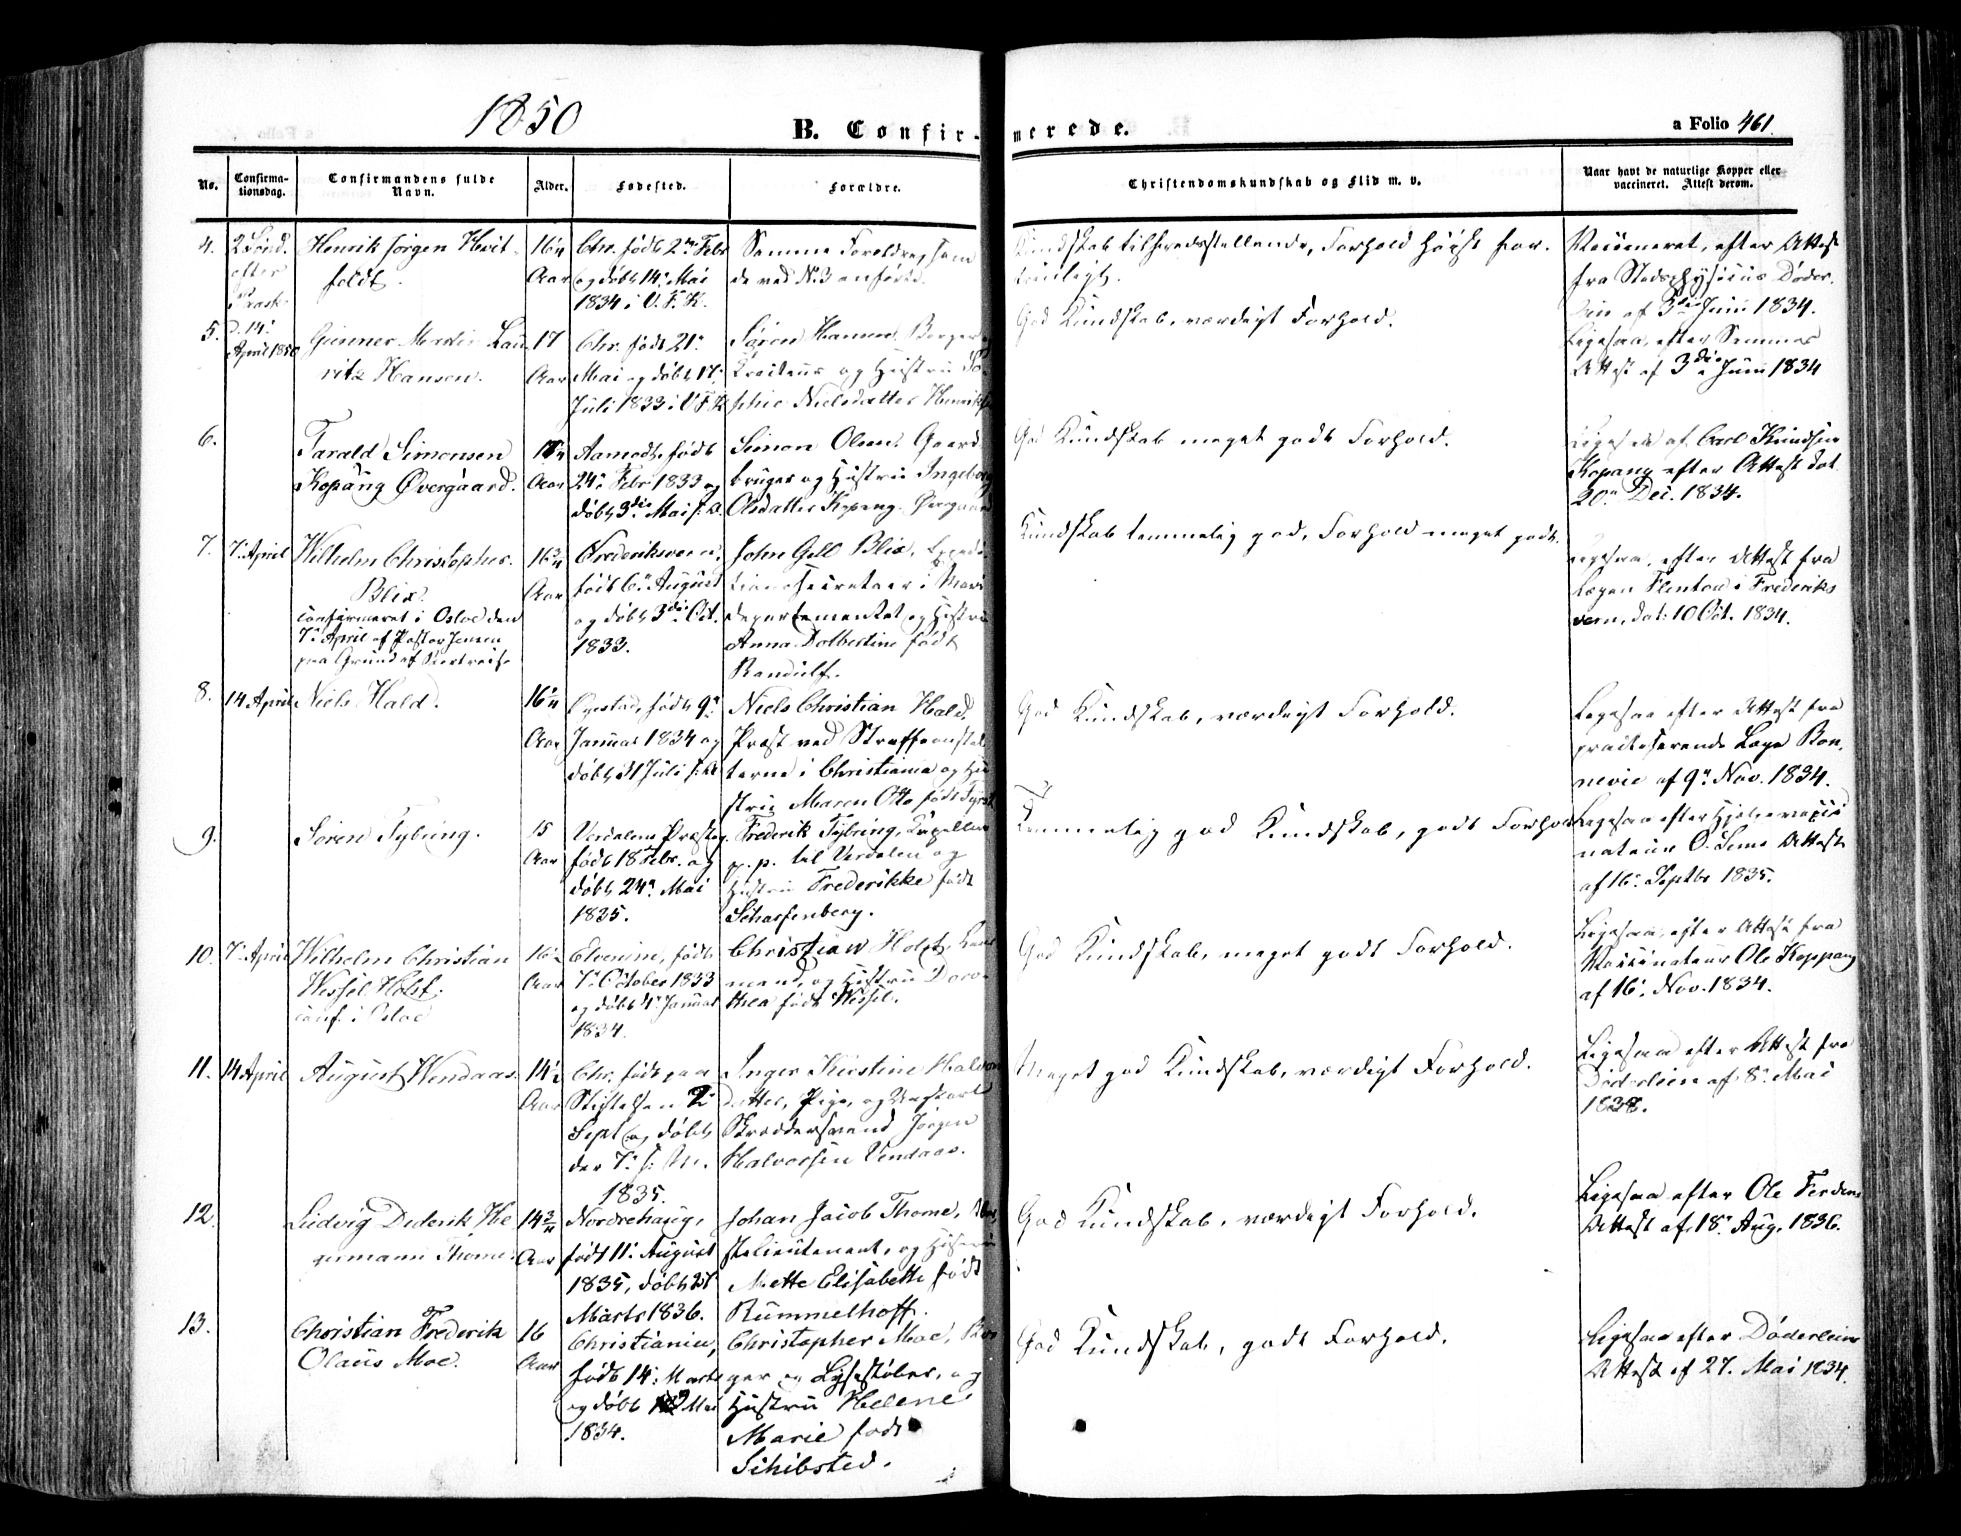 1850
B. Confir-
merede.
a Folio 461
No.
Confirma-
tionsdag.
Confirmandens fulde
Navn.
Alder.
Fødested.
Forældre.
Christendomskundskab og Flid m. v.
Naar havt de naturlige Kopper eller
vaccineret. Attest derom.
4.
2 Sønd.
efter
Paask.
d. 14.
April 1850
Henrik Jørgen Hvit-
feldt.
16
Aar
Chr. født 2 Febr
og døbt 14. Mai
1834 i V. F. K.
Samme Forældre, som
de ved N. 3 anførte.
Kundskab tilfredsstillende, Forhold høist for-
Vaccineret, efter Attest
fra Stadsphysicus Døder-
lein af 3die Juni 1834.
5.
Gunner Martin Lau-
ritz Hansen.
17
Aar
Chr. født 21.
Mai og døbt 17.
Juli 1833 i V. F. K
Søren Hansen, Borger
og Hustru So-
phie Nielsdatter
God Kundskab, værdigt Forhold.
Ligesaa, efter Sammes
Attest af 3die Juni 1834
6.
Tarald Simonsen
Kopang Øvergaard.
Aar
Aamodt, født
24. Febr 1833 og
døbt 3die Mai s. A.
Simon Olsen, Gaard-
bruger og Hustru Ingeborg
Olsdatter Kopang Øvergaard
God Kundskab meget godt Forhold.
Ligesaa af Carl Knudsen
Kopang efter Attest dat.
20. Dec. 1834.
7.
7. April
Wilhelm Christopher
Blix.
confirmeret i Osloe den
7. April af Pastor Jensen
paa Grund af Bortreise
16
Aar
Frederiksværn,
født 6. August
og døbt 3die Oct.
1833.
John Gell Blix,
secretaer i Marine
departementet og Hustru
Anna Dolbertine født
Randulf.
Kundskab temmelig god, Forhold meget godt.
Ligesaa, efter Attest fra
Lægen Flintoe i Frederiks-
værn, dat. 10 Oct. 1834.
8.
14 April
Niels Hald.
16
Aar
Øyestad, født 9.
Januar 1834 og
døbt 31 Juli s. A
Niels Christian Hald,
Præst ved Straffeanstal-
terne i Christiania og Hu-
stru Maren Otto født
God Kundskab, værdigt Forhold.
Ligesaa efter Attest fra
practiserende Læge Bon-
nevie af 9. Nov. 1834.
9.
Søren Tybring.
15
Aar
Verdalens Præsteg.
født 18 Febr. og
døbt 24. Mai
1835.
Frederik Tybring, Capellan
p. p. til Verdalen og
Hustru Frederikke født
Scharfenberg.
Temmelig god Kundskab, godt Forhold
Ligesaa efter Hjelpevacci-
nateur O. Seme Attest
af 16. Septbr 1835.
10.
7. April
Wilhelm Christian
Wessel Holst.
conf. i Osloe
16
Aar
Elverum, født
7. October 1833
og døbt 4. Januar
1834.
Christian Holst,
mand, og Hustru Doro-
thea født Wessel.
God Kundskab, meget godt Forhold.
Ligesaa, efter Attest fra
Vaccinateur Ole Koppang
af 16. Nov. 1834.
11.
14 April
August Wendaas.
14½
Aar
Chr. født paa
Stiftelsen 2
Sept og døbt
der 7.
1835.
Inger Kirstine Halvors-
datter, Pige, og Ungkarl
Skræddersvend Jørgen
Halvorsen Vendaas.
Meget god Kundskab, værdigt Forhold.
Ligesaa efter Attest fra
Døderlein af 8. Mai
1838.
12.
Ludvig Diderik He-
germann Thome.
14¾
Aar
Norderhaug,
født 11. August
1835, døbt 28
Marts 1836.
Johan Jacob Thome,
lieutenant, og Hustru
Mette Elisabeth født
Rummelhoff.
God Kundskab, værdigt Forhold.
Ligesaa efter Ole
Attest af 18. Aug. 1836.
13.
Christian Frederik
Olaus Moe.
16
Aar
Christiania,
født 14. Marts
og døbt Mai
1834.
Christopher Moe, Bor-
ger og Lysestøber, og
Hustru Helene
Marie født
Schibsted.
God Kundskab, godt Forhold.
Ligesaa efter Døderleins
Attest af 27. Mai 1834.